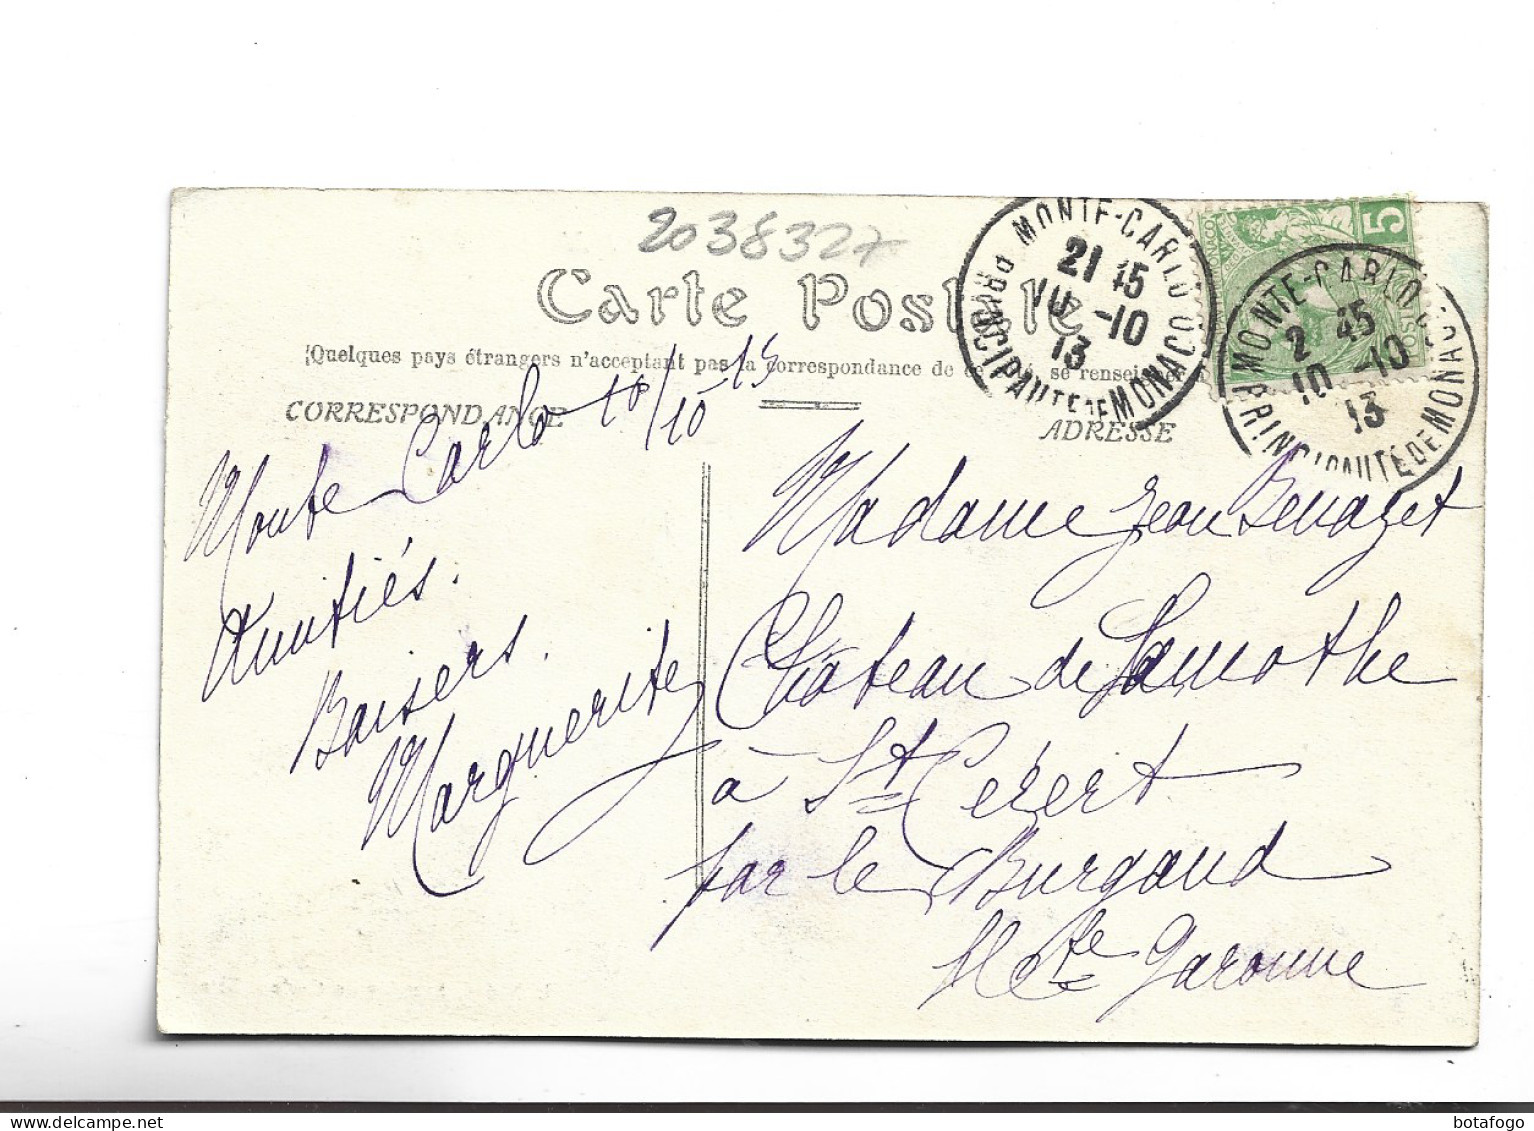 2038327
Carte Postale
(Quelques pays étrangers n'acceptent pas la correspondance de se renseigner
CORRESPONDANCE
ADRESSE
MONTE-CARLO
21 15
10 -10
13
PRINCIPAUTE DE MONACO
5
MONTE-CARLO
2 45
10 -10
13
PRINCIPAUTE DE MONACO
Monte Carlo 10/10 - 13
Amitiés.
Baisers.
Marguerite
Madame Jean Benazet
Château de Lamothe
à St Cézert
par le Burgaud
Hte Garonne
botafogo